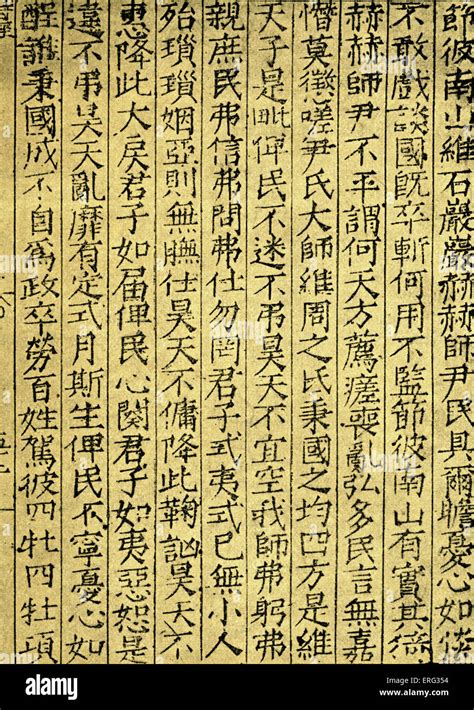 節彼南山維石巖巖赫赫師尹民具爾瞻憂心如惔
不敢戲談國既卒斬何用不監節彼南山有實其猗
赫赫師尹不平謂何天方薦瘥喪亂弘多民言無嘉
憯莫懲嗟尹氏大師維周之氏秉國之均四方是維
天子是毗俾民不迷不弔昊天不宜空我師弗躬弗
親庶民弗信弗問弗仕勿罔君子式夷式已無小人
殆瑣瑣姻亞則無膴仕昊天不傭降此鞠訩昊天不
惠降此大戾君子如届俾民心闋君子如夷惡怒是
違不弔昊天亂靡有定式月斯生俾民不寧憂心如
酲誰秉國成不自爲政卒勞百姓駕彼四牡四牡項
alamy
Image ID: ERG354
www.alamy.com